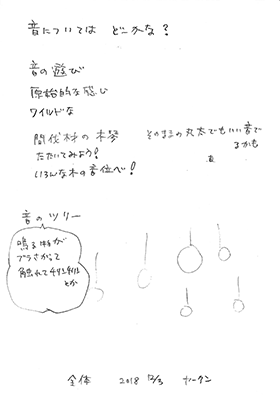 音については どこかな？
音の遊び
原始的な感じ
ワイルドな
間伐材の木琴
たたいてみよう！
いろんな木の音位べ！
そのままの丸太でもいい音で
るかも
音のツリー
鳴る
ブラさがって
触れて
とか
全体 2018 12/3